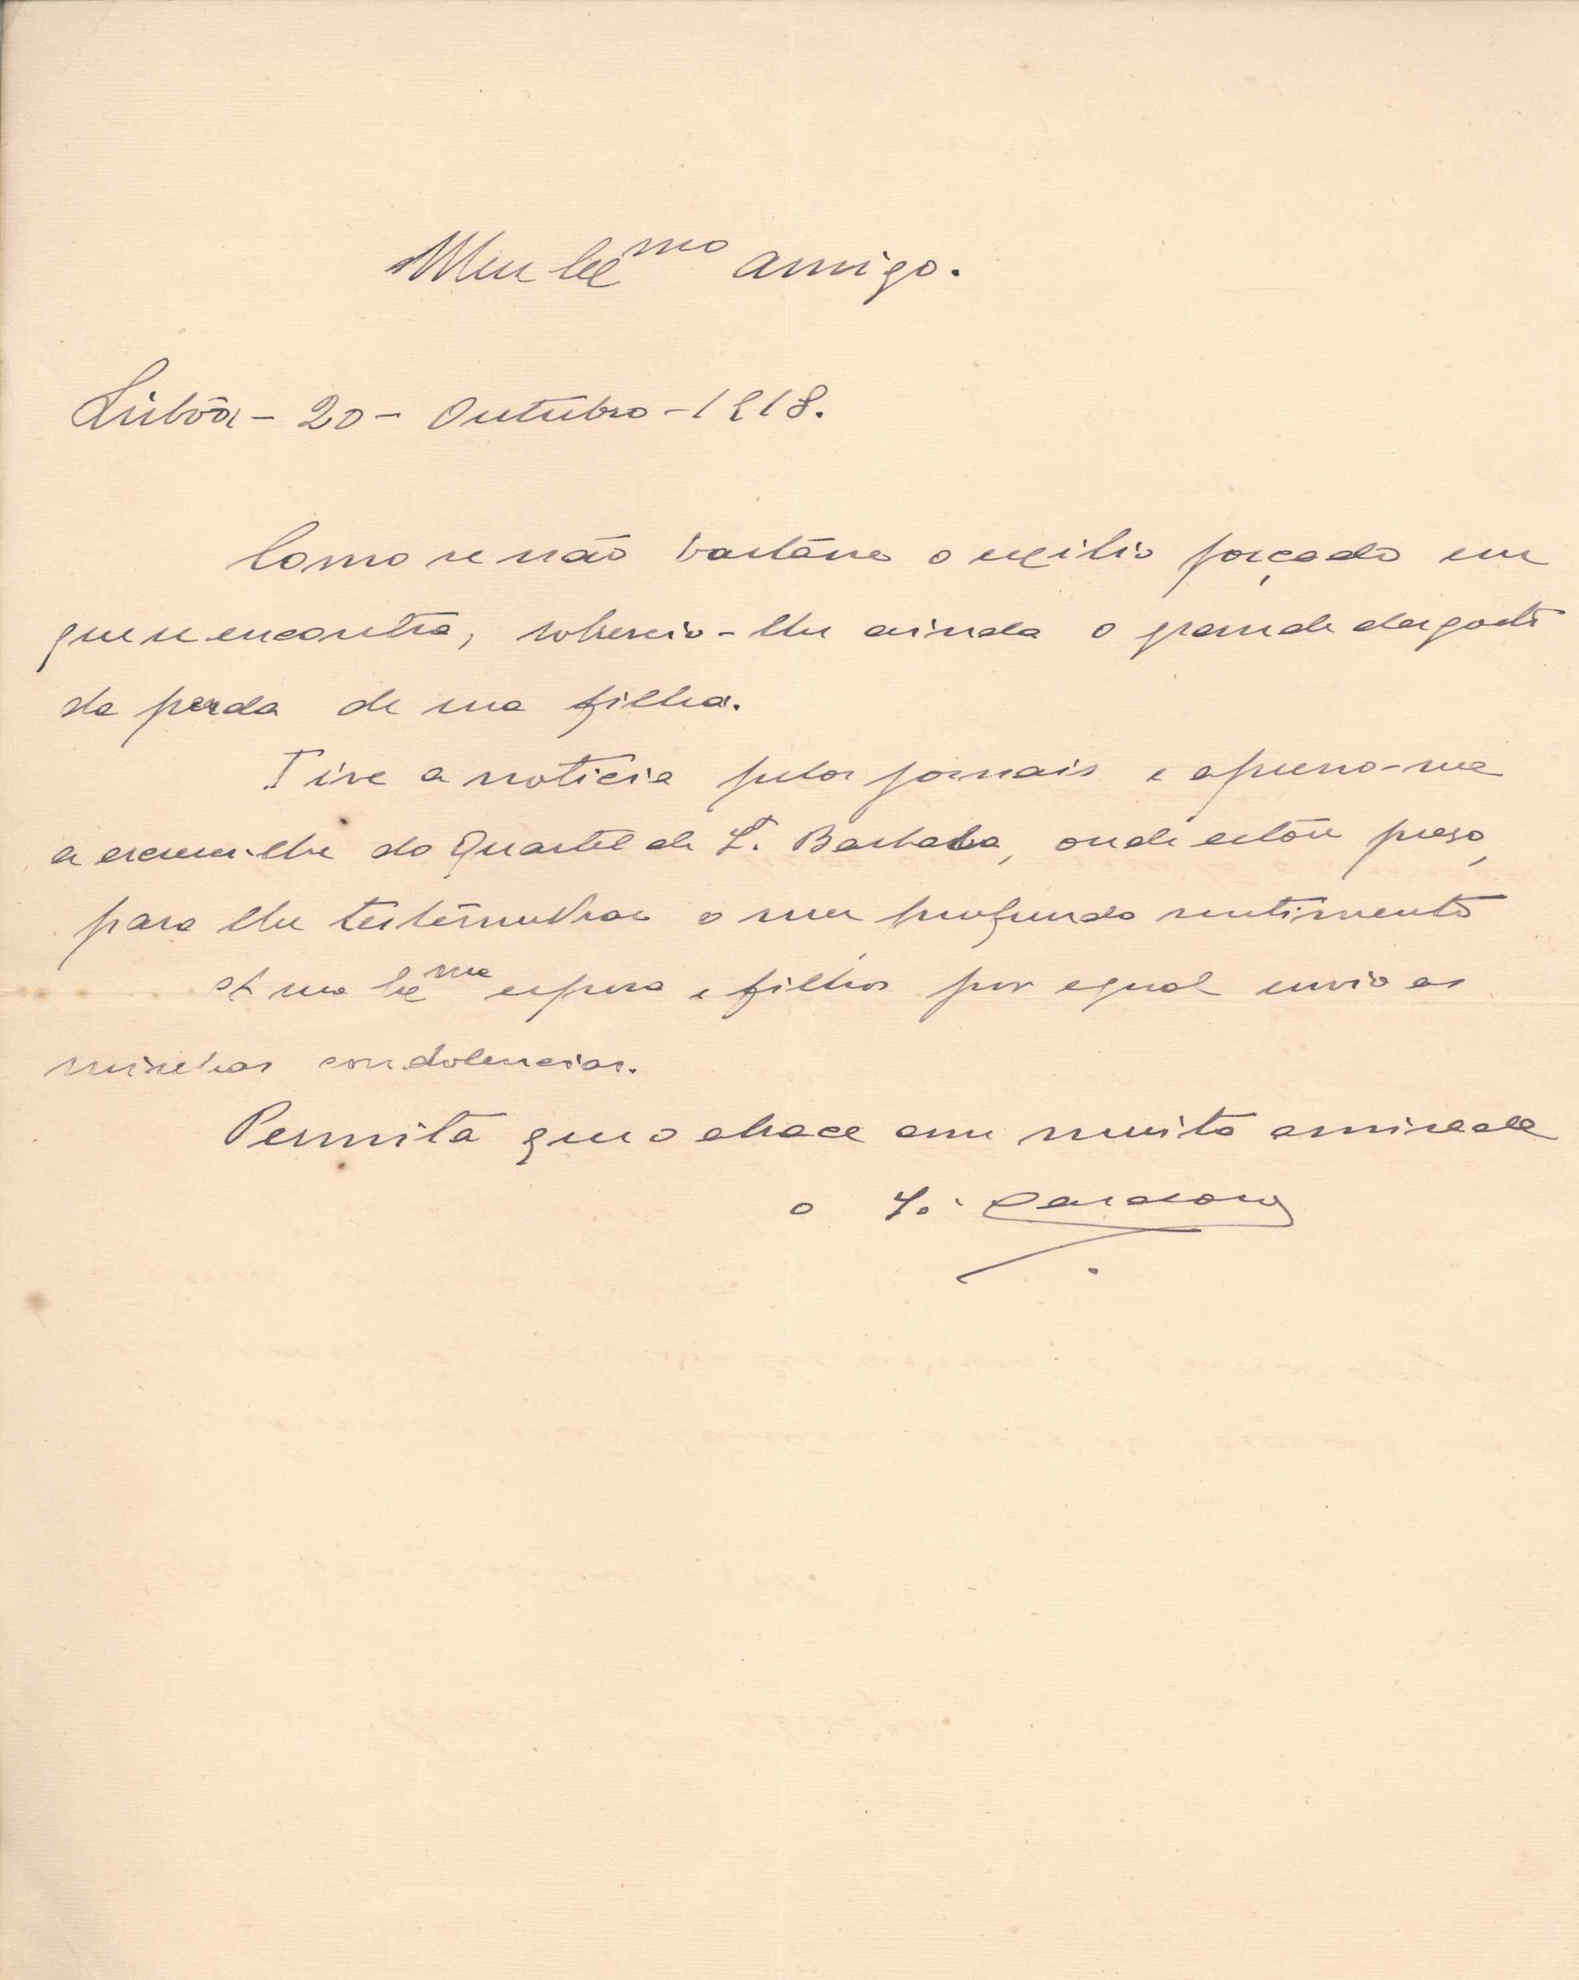 Meu Ex^mo amigo.
Lisbôa - 20 - Outubro - 1918.
Como se não bastásse o exilio forçado em
que se encontra, sobreveio-lhe ainda o grande desgosto
da perda de sua filha.
Tive a noticia pelos jornais e apresso-me
a escrever-lhe do Quartel de S. Barbara, onde estou preso,
para lhe testemunhar o meu profundo sentimento
A sua Ex^ma esposa e filhos por egual envio as
minhas condolencias.
Permita que o abrace com muita amisade
o